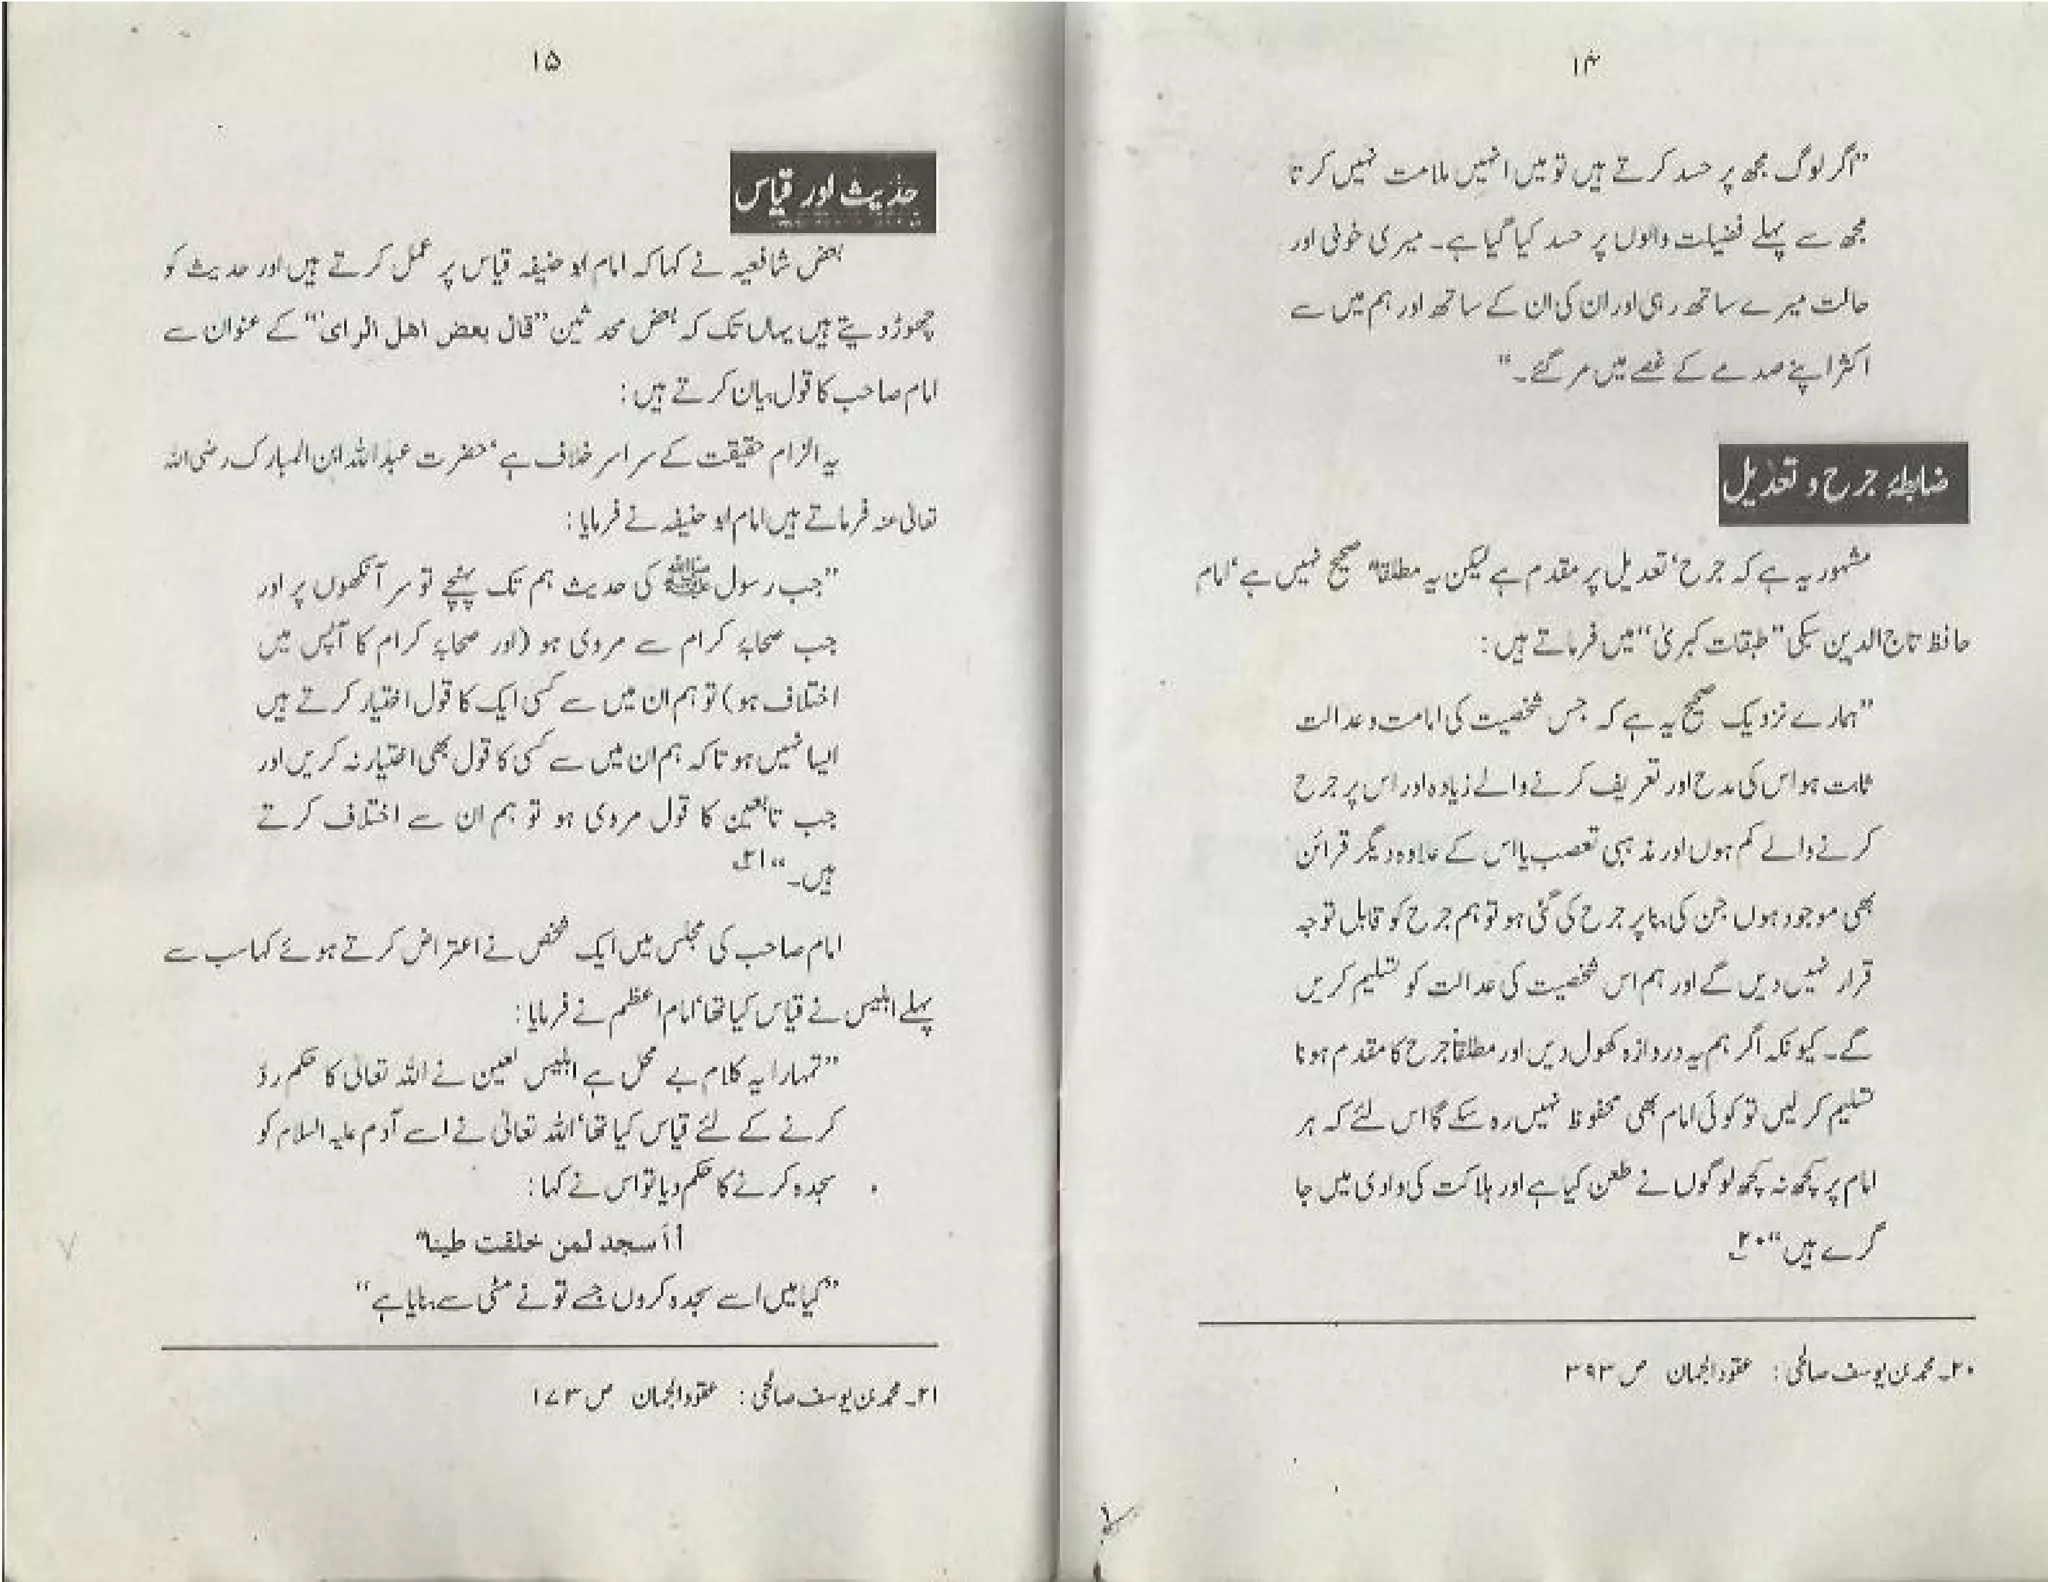 ۱۴
”اگر لوگ مجھ پر حسد کرتے ہیں تو میں انہیں ملامت نہیں کرتا
مجھ سے پہلے فضیلت والوں پر حسد کیا گیا ہے۔ میری خوئی اور
حالت میرے ساتھ رہی اور ان کی ان کے ساتھ اور ہم میں سے
اکثر اپنے صدمے کے غصے میں مر گئے۔“
ضابطۂ جرح و تعدیل
مشہور یہ ہے کہ جرح‘ تعدیل پر مقدم ہے لیکن یہ مطلقاً صحیح نہیں ہے‘ امام
حافظ تاج الدین سبکی ”طبقات کبریٰ“ میں فرماتے ہیں:
”ہمارے نزدیک صحیح یہ ہے کہ جس شخصیت کی امامت و عدالت
ثابت ہو اس کی مدح اور تعریف کرنے والے زیادہ اور اس پر جرح
کرنے والے کم ہوں اور مذہبی تعصب یا اس کے علاوہ دیگر قرائن
بھی موجود ہوں جن کی بنا پر جرح کی گئی ہو تو ہم جرح کو قابل توجہ
قرار نہیں دیں گے اور ہم اس شخصیت کی عدالت کو تسلیم کریں
گے۔ کیونکہ اگر ہم یہ دروازہ کھول دیں اور مطلقاً جرح کا مقدم ہونا
تسلیم کر لیں تو کوئی امام بھی محفوظ نہیں رہ سکے گا اس لئے کہ ہر
امام پر کچھ نہ کچھ لوگوں نے طعن کیا ہے اور ہلاکت کی وادی میں جا
گرے ہیں“ ۲۰
۲۰۔ محمد بن یوسف صالحی: عقود الجمان ص ۳۹۳
۱۵
حدیث اور قیاس
بعض شافعیہ نے کہا کہ امام ابو حنیفہ قیاس پر عمل کرتے ہیں اور حدیث کو
چھوڑ دیتے ہیں یہاں تک کہ بعض محدثین ”قال بعض اهل الرای“ کے عنوان سے
امام صاحب کا قول بیان کرتے ہیں:
یہ الزام حقیقت کے سراسر خلاف ہے‘ حضرت عبداللہ ابن المبارک رضی اللہ
تعالیٰ عنہ فرماتے ہیں امام ابو حنیفہ نے فرمایا:
”جب رسول ﷺ کی حدیث ہم تک پہنچے تو سر آنکھوں پر اور
جب صحابۂ کرام سے مروی ہو (اور صحابۂ کرام کا آپس میں
اختلاف ہو) تو ہم ان میں سے کسی ایک کا قول اختیار کرتے ہیں
ایسا نہیں ہوتا کہ ہم ان میں سے کسی کا قول بھی اختیار نہ کریں اور
جب تابعین کا قول مروی ہو تو ہم ان سے اختلاف کرتے
ہیں۔“ ۲۱
امام صاحب کی مجلس میں ایک شخص نے اعتراض کرتے ہوئے کہا سب سے
پہلے ابلیس نے قیاس کیا تھا‘ امام اعظم نے فرمایا:
”تمہارا یہ کلام بے محل ہے ابلیس لعین نے اللہ تعالیٰ کا حکم رد
کرنے کے لئے قیاس کیا تھا‘ اللہ تعالیٰ نے اسے آدم علیہ السلام کو
سجدہ کرنے کا حکم دیا تو اس نے کہا:
أ أسجد لمن خلقت طينا
”کیا میں اسے سجدہ کروں جسے تو نے مٹی سے بنایا ہے“
۲۱۔ محمد بن یوسف صالحی: عقود الجمان ص ۱۷۳